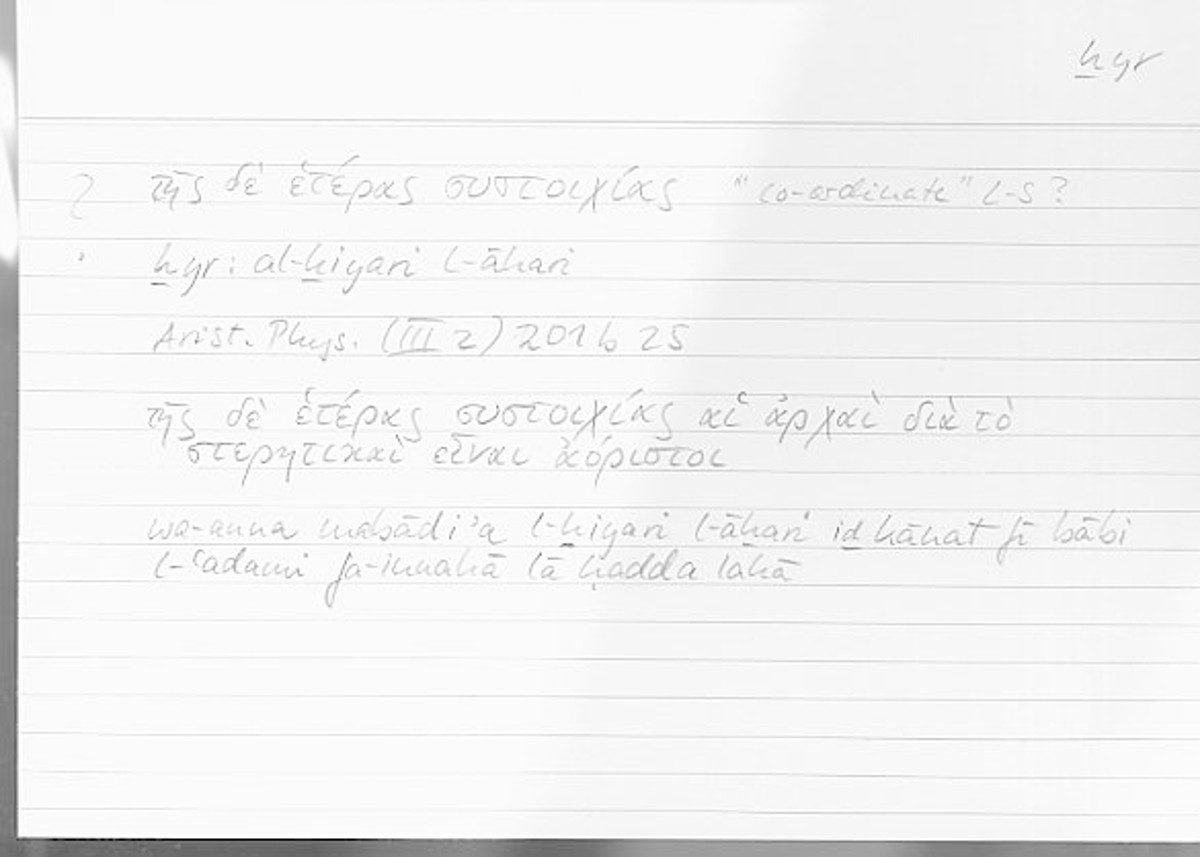 ẖyr
? τῆς δὲ ἑτέρας συστοιχίας "co-ordinate" L-S?
ẖyr: al-ẖiyari l-āẖari
Arist. Phys. (III 2) 201 b 25
τῆς δὲ ἑτέρας συστοιχίας αἱ ἀρχαὶ διὰ τὸ
στερητικαὶ εἶναι ἀόριστοι
wa-anna mabādiʾa l-ẖiyari l-āẖari iḏ kānat fī bābi
l-ʿadami fa-innahā lā ḥadda lahā